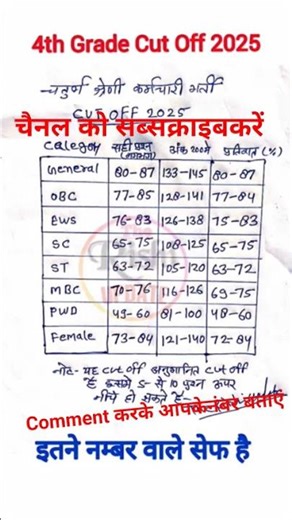 4th Grade Cut Off 2025
चतुर्थ श्रेणी कर्मचारी भर्ती
CUT OFF 2025
चैनल को सब्सक्राइबकरें
Category सही प्रश्न अंक 200 में प्रतिशत (%)
General 80-87 133-145 80-87
OBC 77-85 128-141 77-84
EWS 76-83 126-138 75-83
SC 65-75 108-125 65-75
ST 63-72 105-120 63-72
MBC 70-76 116-126 69-75
PWD 49-60 81-100 48-60
Female 73-84 121-140 72-84
नोट- यह cut off अनुमानित cut off
है इसमें 5 से 10 प्रश्न ऊपर
नीचे हो सकते है-
Comment करके आपके नंबर बताएं
इतने नम्बर वाले सेफ है